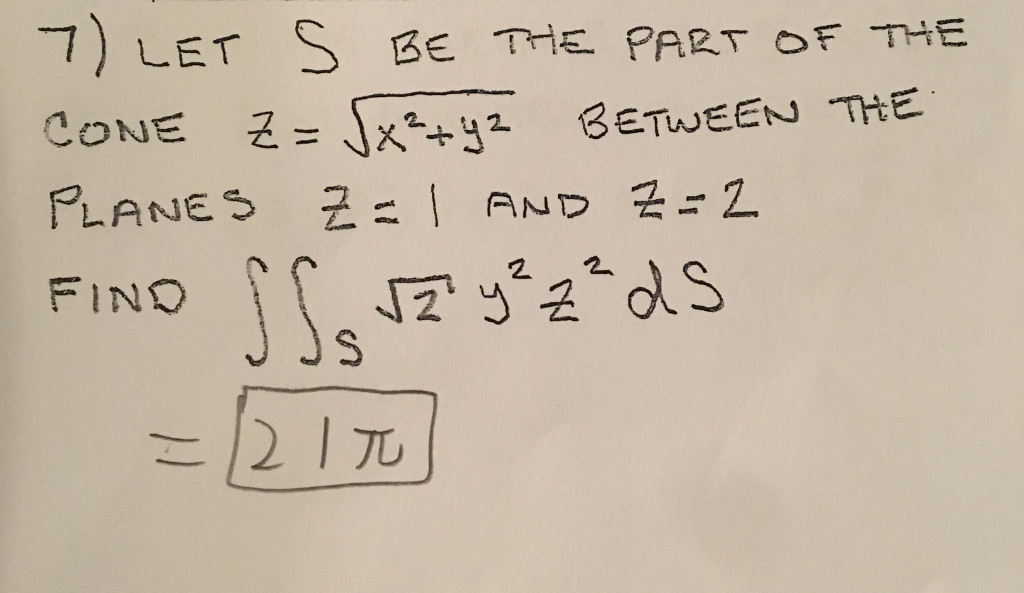 7) LET S BE THE PART OF THE
CONE Z = √x²+y² BETWEEN THE
PLANES Z = 1 AND Z = 2
FIND ∬_S √2 y² z² dS
= 21π